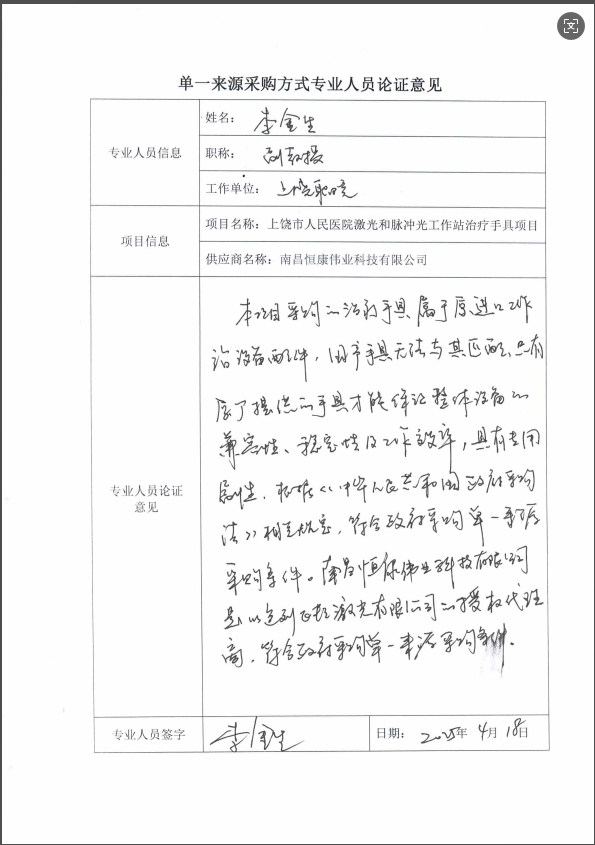 单一来源采购方式专业人员论证意见
专业人员信息
姓名：李金生
职称：副教授
工作单位：上饶职院
项目信息
项目名称：上饶市人民医院激光和脉冲光工作站治疗手具项目
供应商名称：南昌恒康伟业科技有限公司
专业人员论证
意见
本项目采购的治疗手具属于原进口工作
站设备配件，国产手具无法与其匹配，只有
原厂提供的手具才能保证整体设备的
兼容性、稳定性及工作效率，具有专用
性。根据《中华人民共和国政府采购
法》相关规定，符合政府采购单一来源
采购条件。南昌恒康伟业科技有限公司
是以色列飞顿激光有限公司的授权代理
商，符合政府采购单一来源采购条件。
专业人员签字
李金生
日期：2025年4月18日